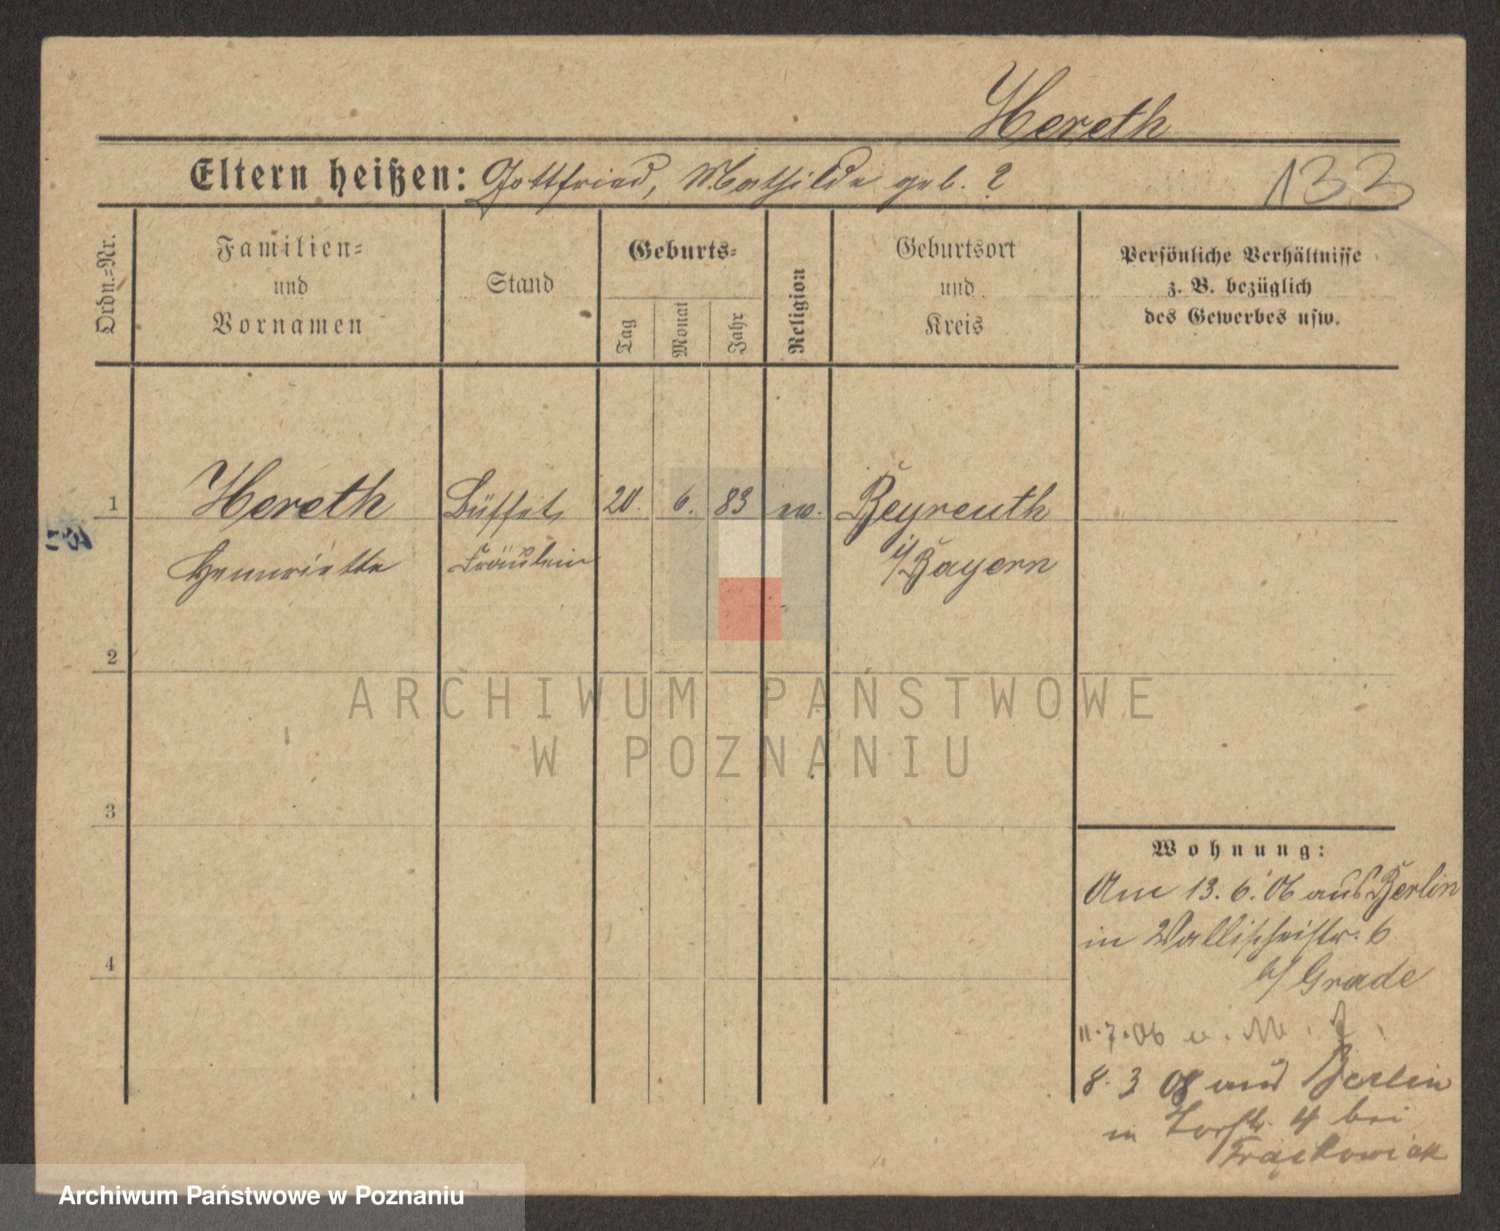 Hereth
Eltern heißen: Gottfried, Mathilde geb. ?
133
Ordn.-Nr.
Familien-
und
Vornamen
Stand
Geburts-
Tag
Monat
Jahr
Religion
Geburtsort
und
Kreis
Persönliche Verhältnisse
z. B. bezüglich
des Gewerbes usw.
1
Hereth
Henriette
Büffet
Fräulein
20. 6. 83
ev.
Beyreuth
i/Bayern
2
3
4
ARCHIWUM PAŃSTWOWE
W POZNANIU
Wohnung:
Am 13. 6. 06 aus Berlin
in Wallischeistr. 6
b/ Grade
11.7.06
8. 3 08 aus Berlin
in 4 bei
Frąckowiak
Archiwum Państwowe w Poznaniu